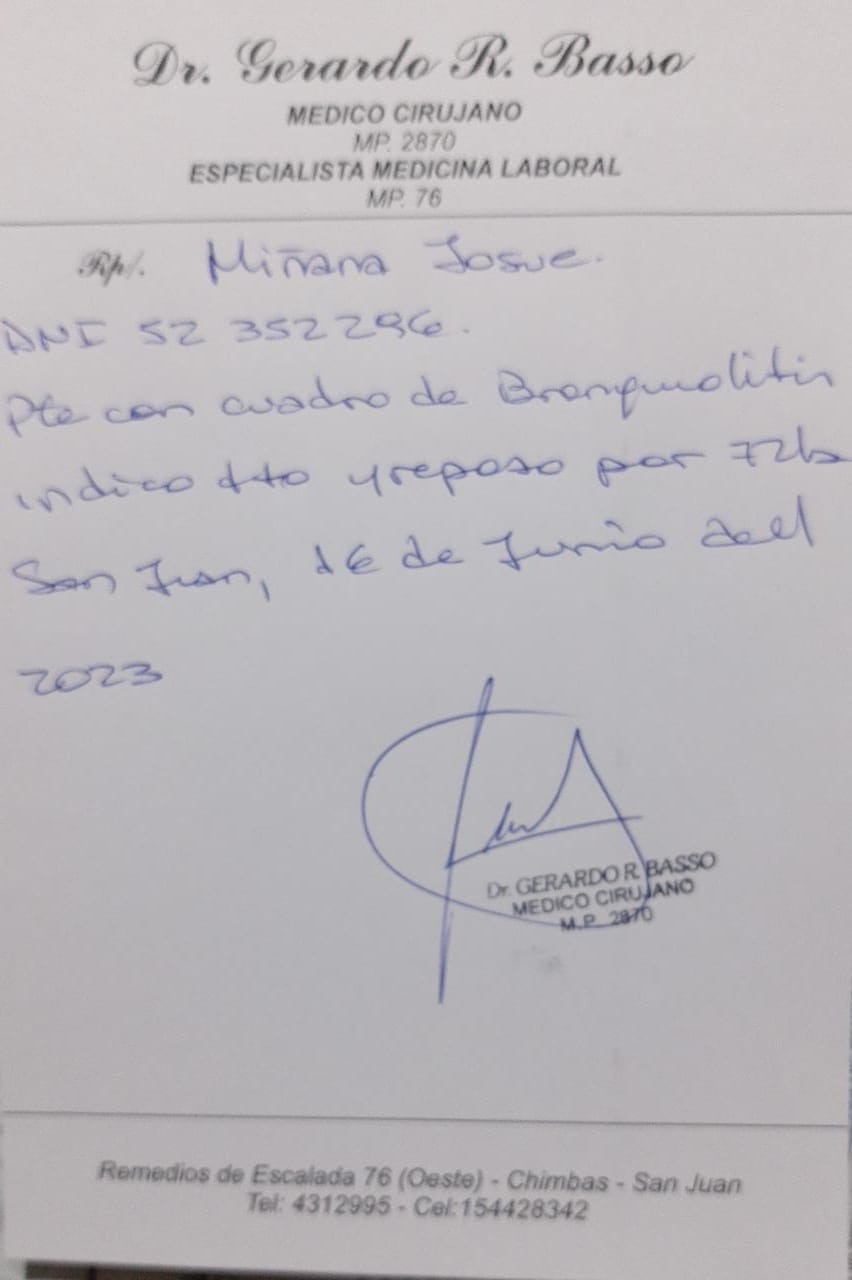 Dr. Gerardo R. Basso
MEDICO CIRUJANO
MP. 2870
ESPECIALISTA MEDICINA LABORAL
MP. 76
Rp/. Miñana Josue.
DNI 52 352296.
Pte con cuadro de Bronquiolitis
indico tto y reposo por 72hs
San Juan, 16 de Junio dell
2023
Dr. GERARDO R. BASSO
MEDICO CIRUJANO
M.P. 2870
Remedios de Escalada 76 (Oeste) - Chimbas - San Juan
Tel: 4312995 - Cel:154428342